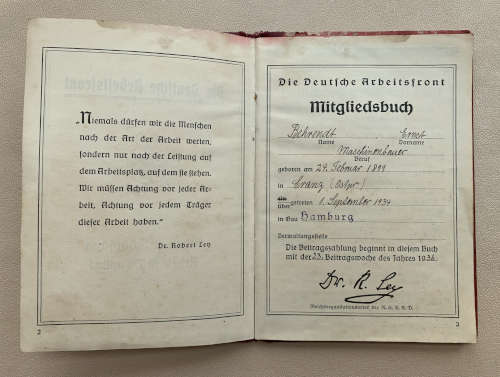 „Niemals dürfen wir die Menschen
nach der Art der Arbeit werten,
sondern nur nach der Leistung auf
dem Arbeitsplatz, auf dem sie stehen.
Wir müssen Achtung vor jeder Ar-
beit, Achtung vor jedem Träger
dieser Arbeit haben.“
Dr. Robert Ley
2
Die Deutsche Arbeitsfront
Mitgliedsbuch
Behrendt Ernst
Name Vorname
Maschinenbauer
Beruf
geboren am 29. Februar 1899
in Cranz (Ostpr.)
übergetreten 1. September 1934
in Gau Hamburg
Verwaltungsstelle
Die Beitragszahlung beginnt in diesem Buch
mit der 23. Beitragswoche des Jahres 1936.
Dr. R. Ley
Reichsorganisationsleiter der N.S.D.A.P.
3